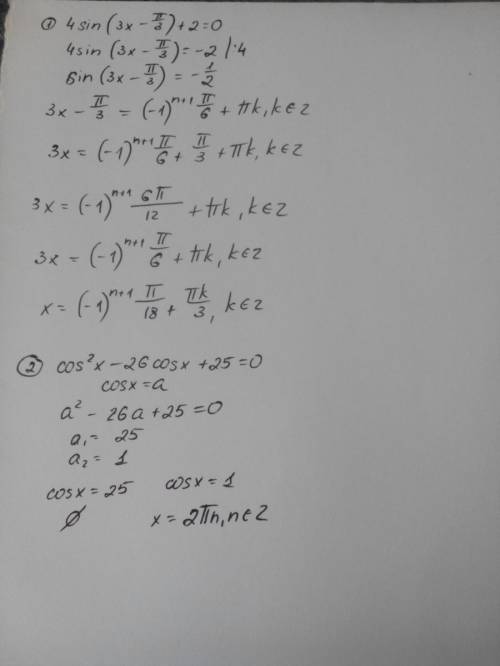 ① 4sin(3x - π/3) + 2 = 0
4sin(3x - π/3) = -2 |:4
sin(3x - π/3) = -1/2
3x - π/3 = (-1)ⁿ⁺¹ π/6 + πk, k∈z
3x = (-1)ⁿ⁺¹ π/6 + π/3 + πk, k∈z
3x = (-1)ⁿ⁺¹ 6π/12 + πk, k∈z
3x = (-1)ⁿ⁺¹ π/6 + πk, k∈z
x = (-1)ⁿ⁺¹ π/18 + πk/3, k∈z
② cos²x - 26cosx + 25 = 0
cosx = a
a² - 26a + 25 = 0
a₁ = 25
a₂ = 1
cosx = 25 cosx = 1
∅ x = 2πn, n∈z